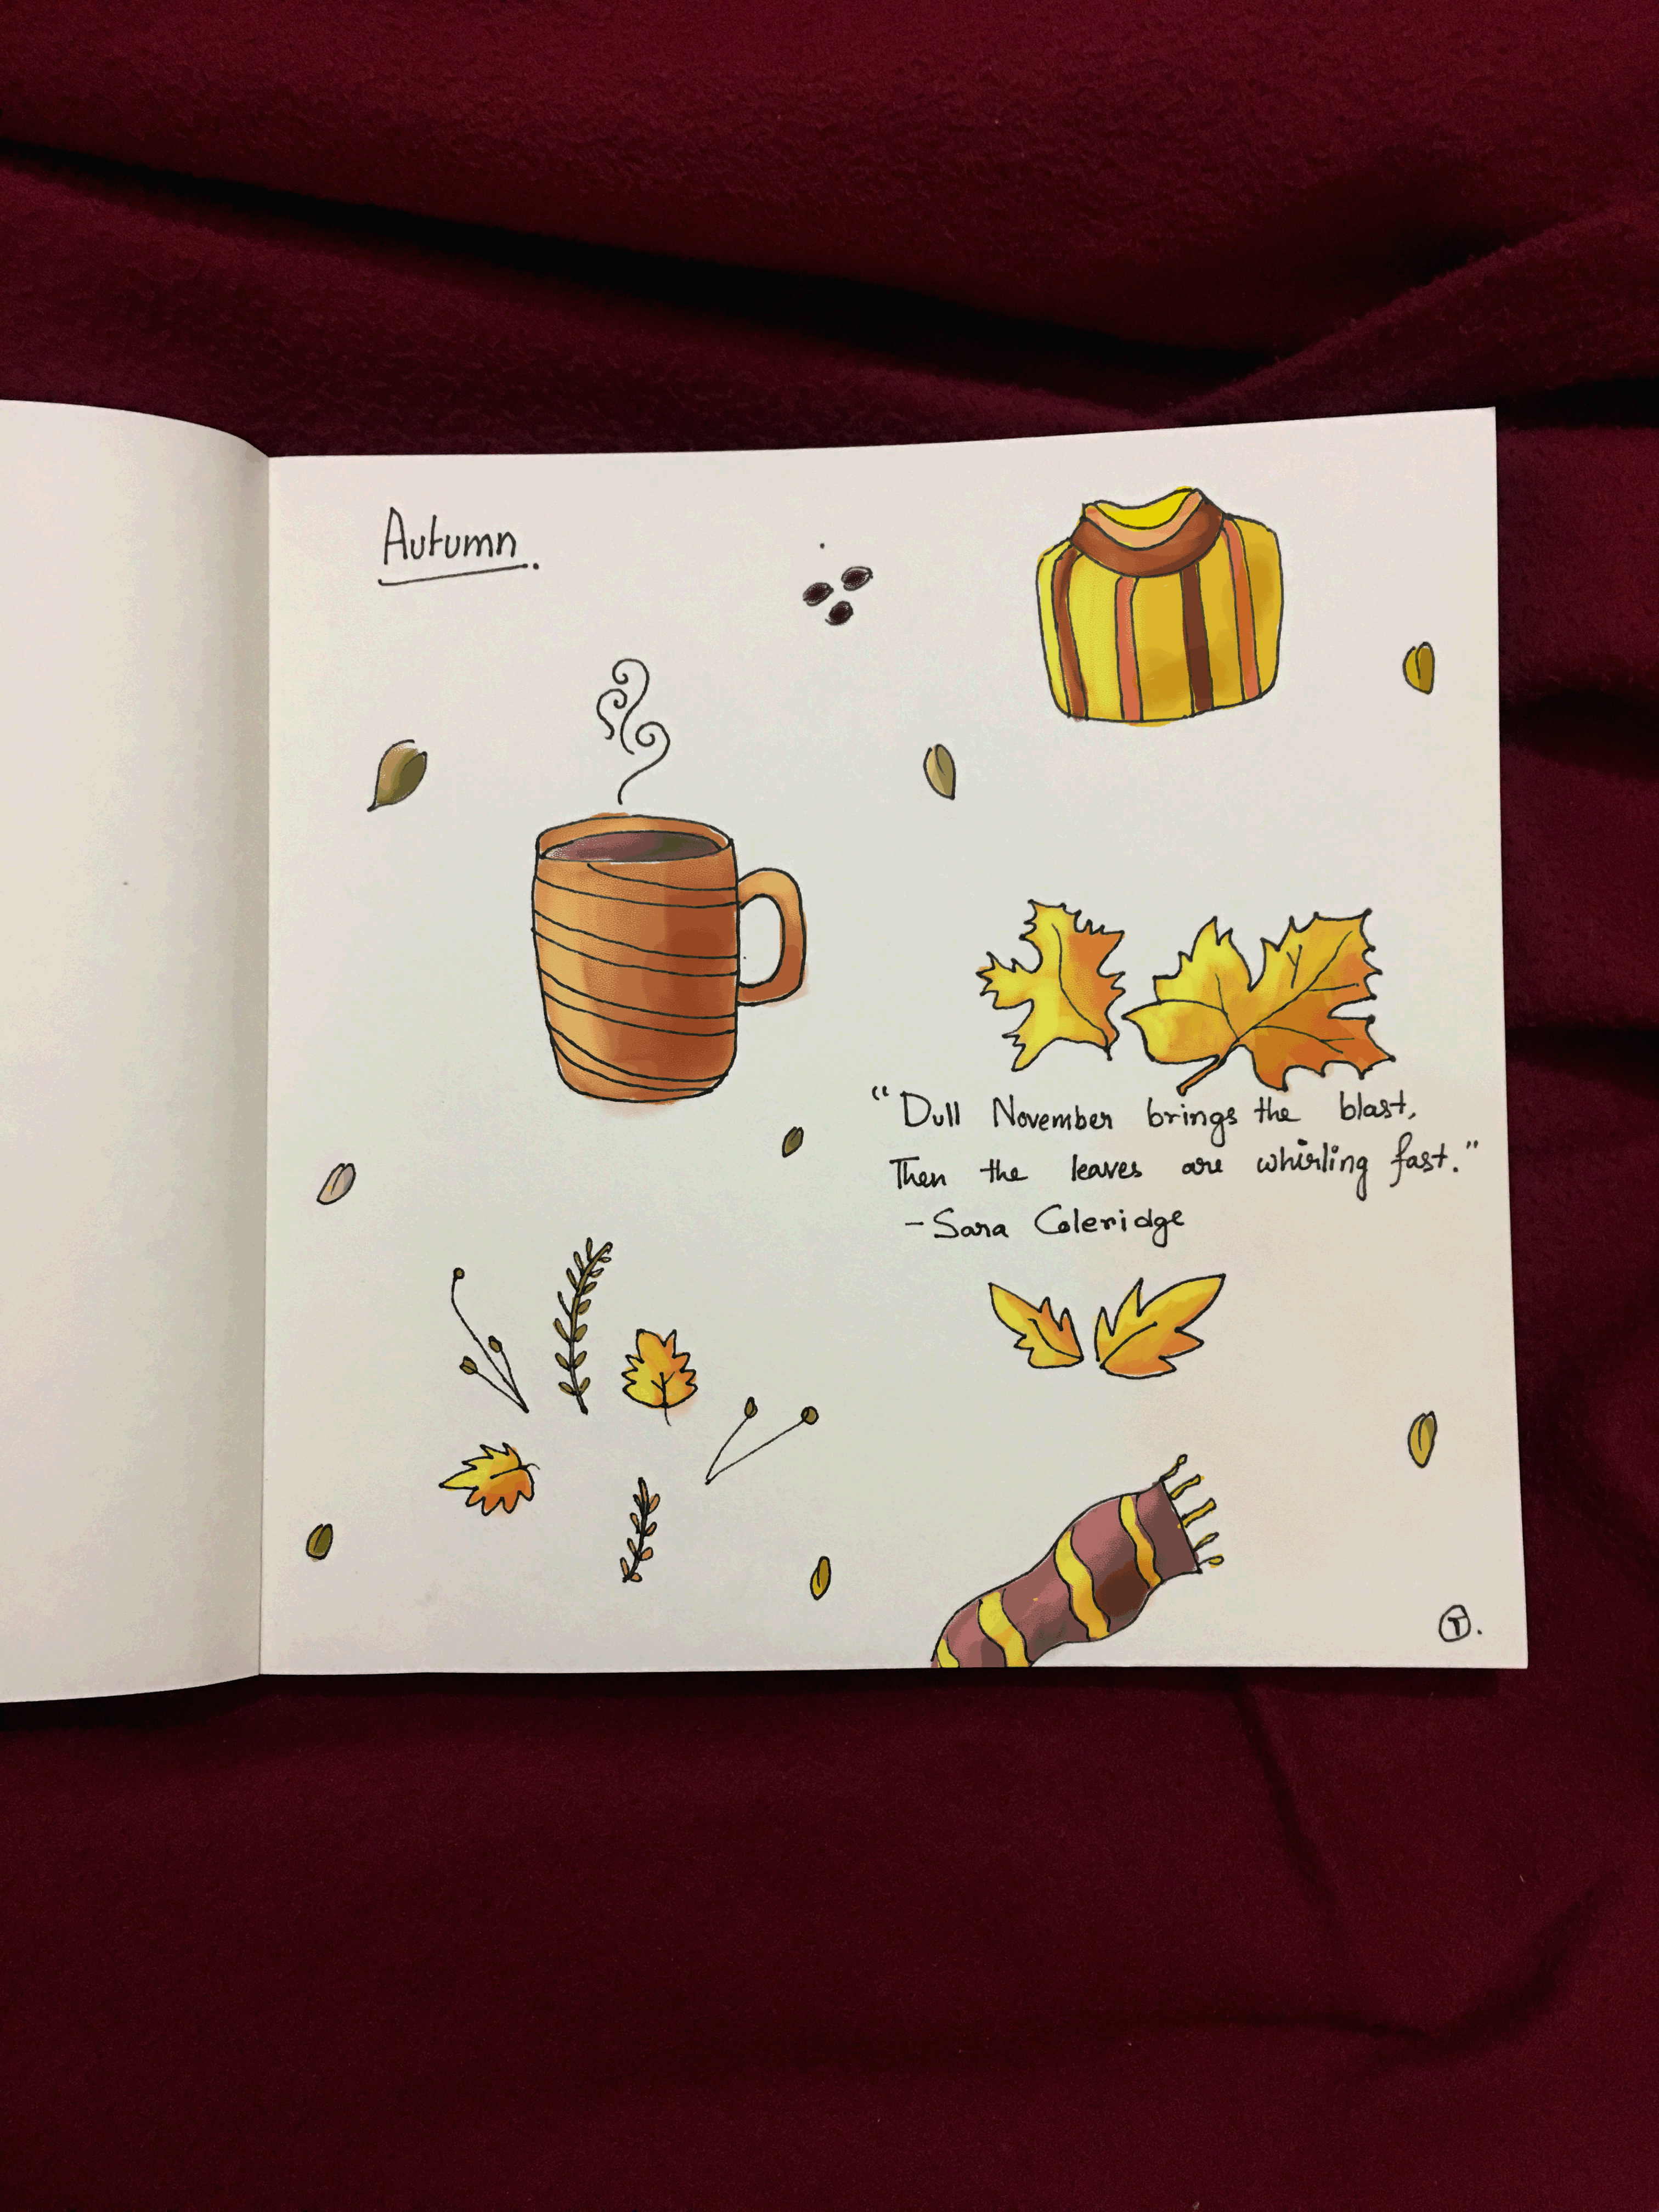 Autumn.
"Dull November brings the blast,
Then the leaves are whirling fast."
-Sara Coleridge
T.